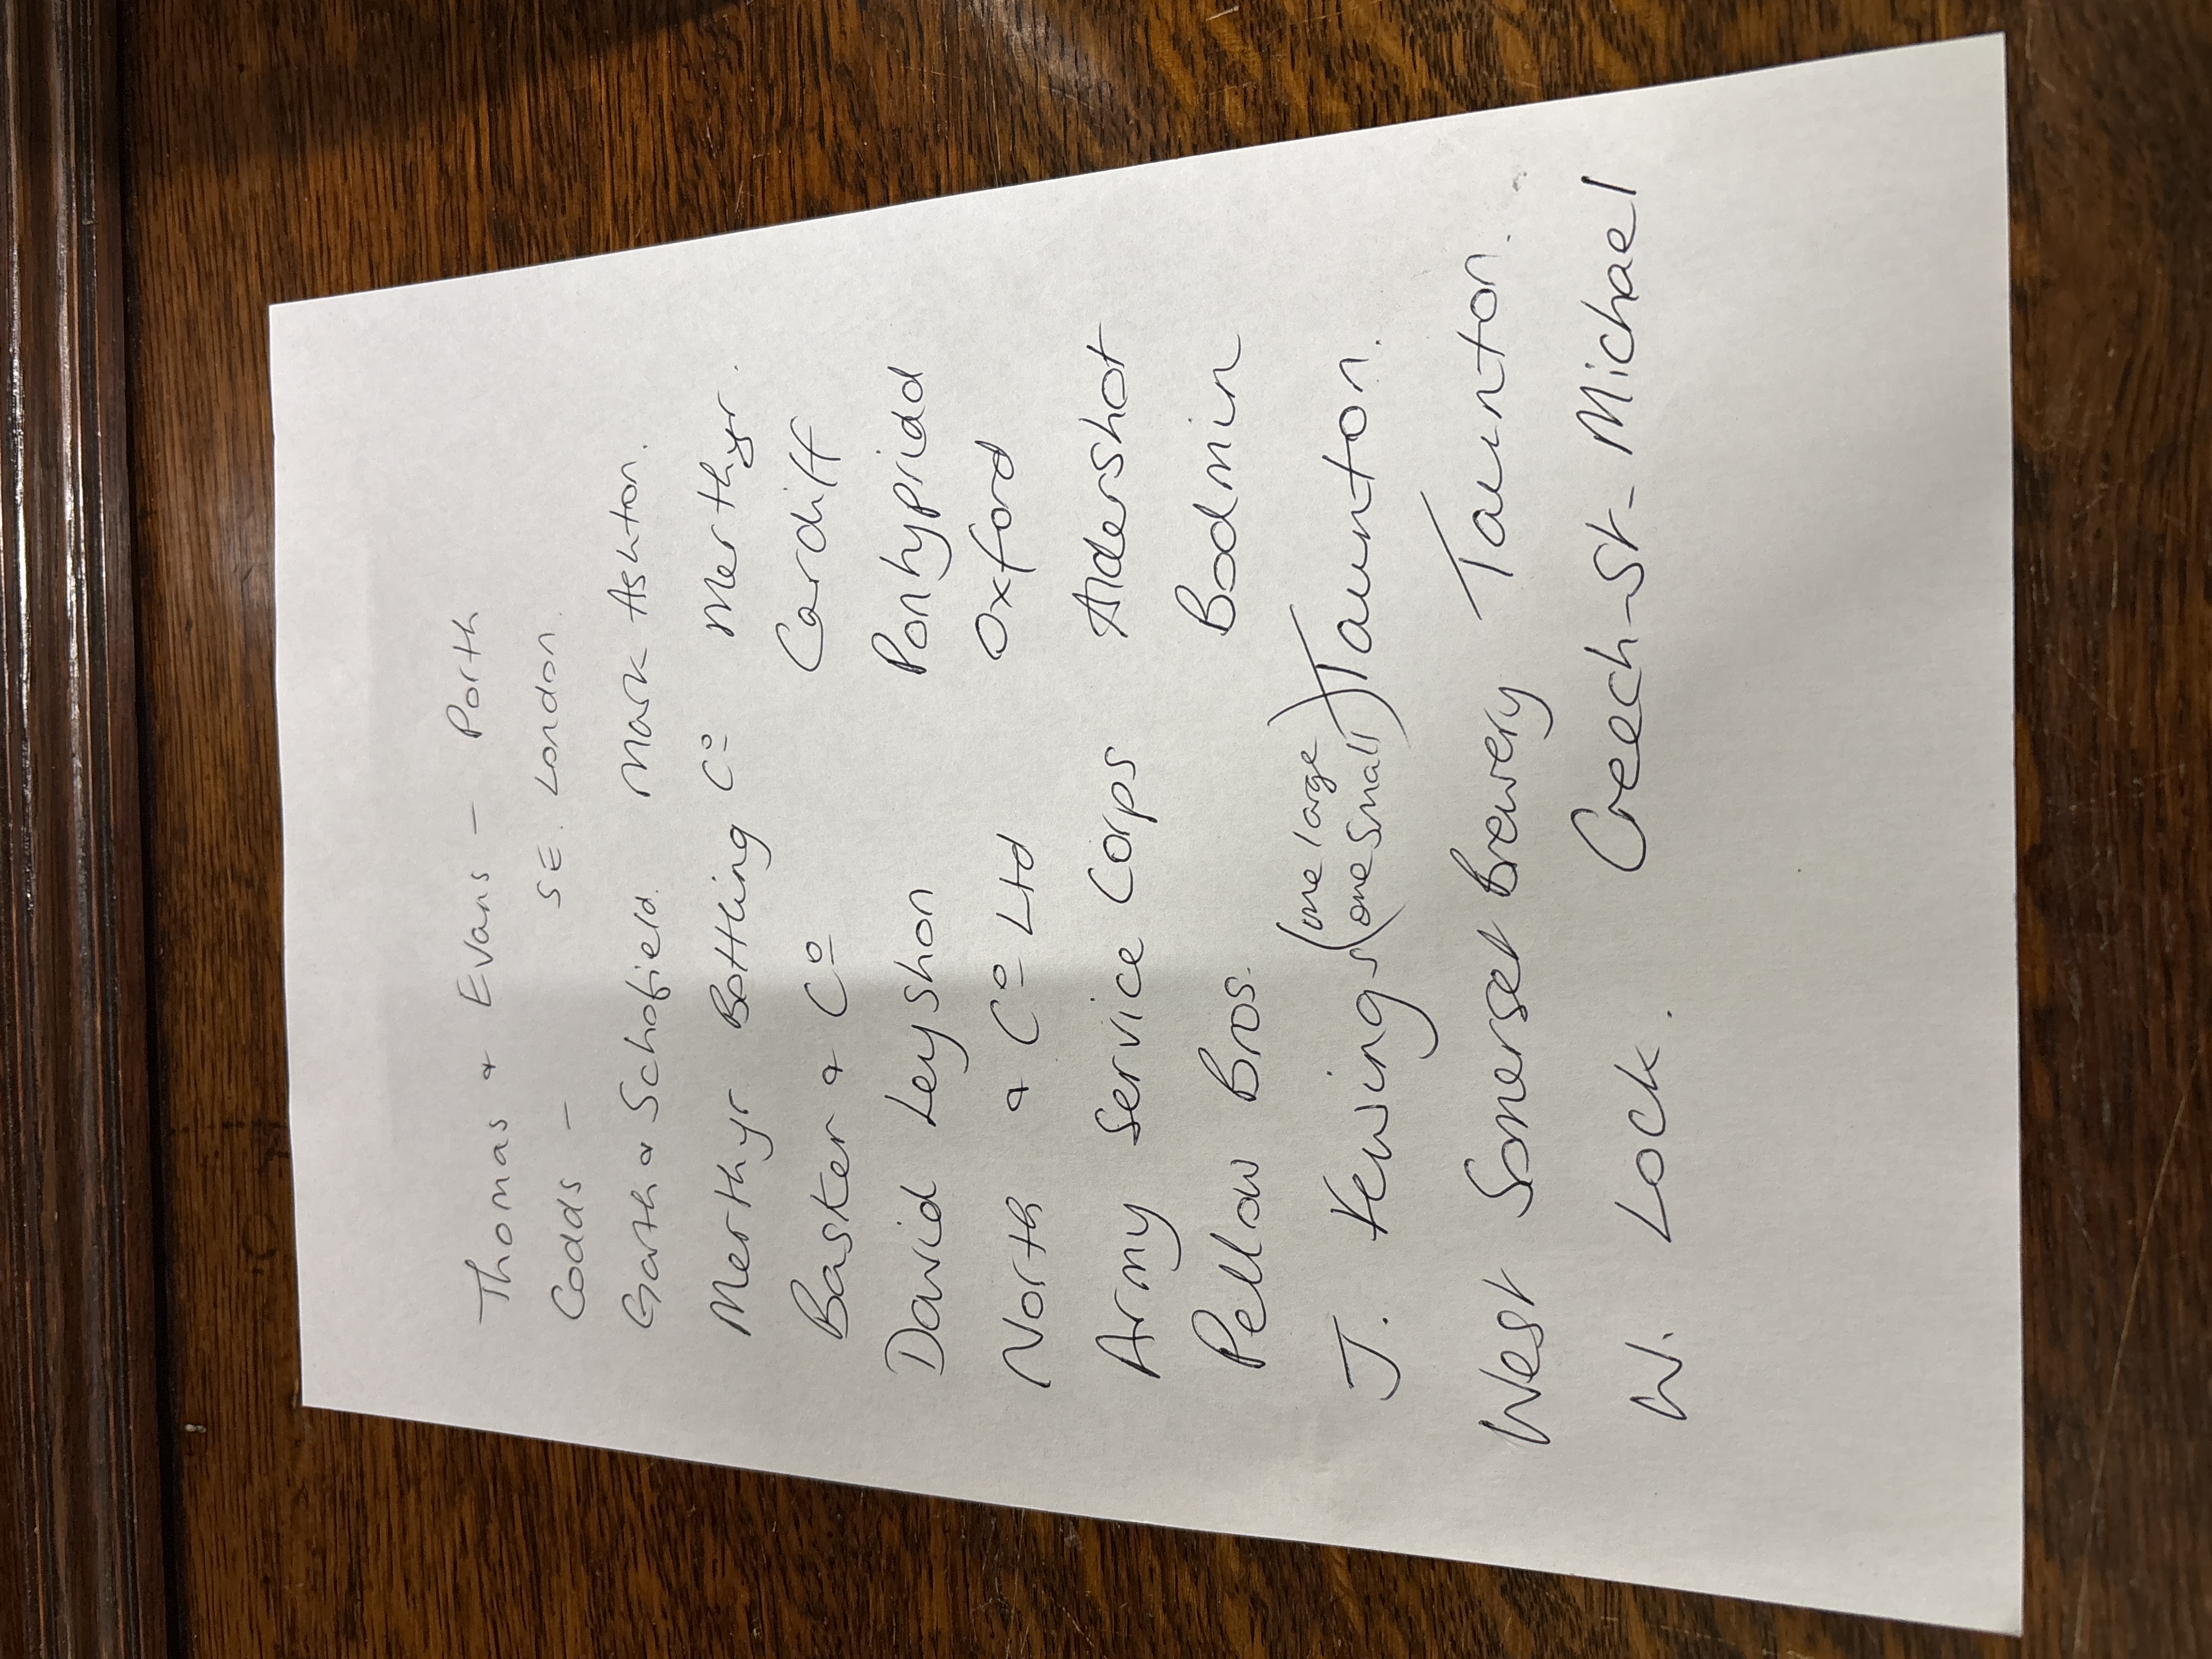 Thomas & Evans - Porth
Codds - S.E. London.
Garth & Schofield. Mark Ashton.
Merthyr Bottling Co Merthyr.
Basker & Co Cardiff
David Leyshon Pontypridd
North & Co Ltd Oxford
Army Service Corps Aldershot
Pellow Bros. Bodmin
J. Kewings (one large one small) Taunton.
West Somerset Brewery Taunton.
W. Lock. Creech-St-Michael